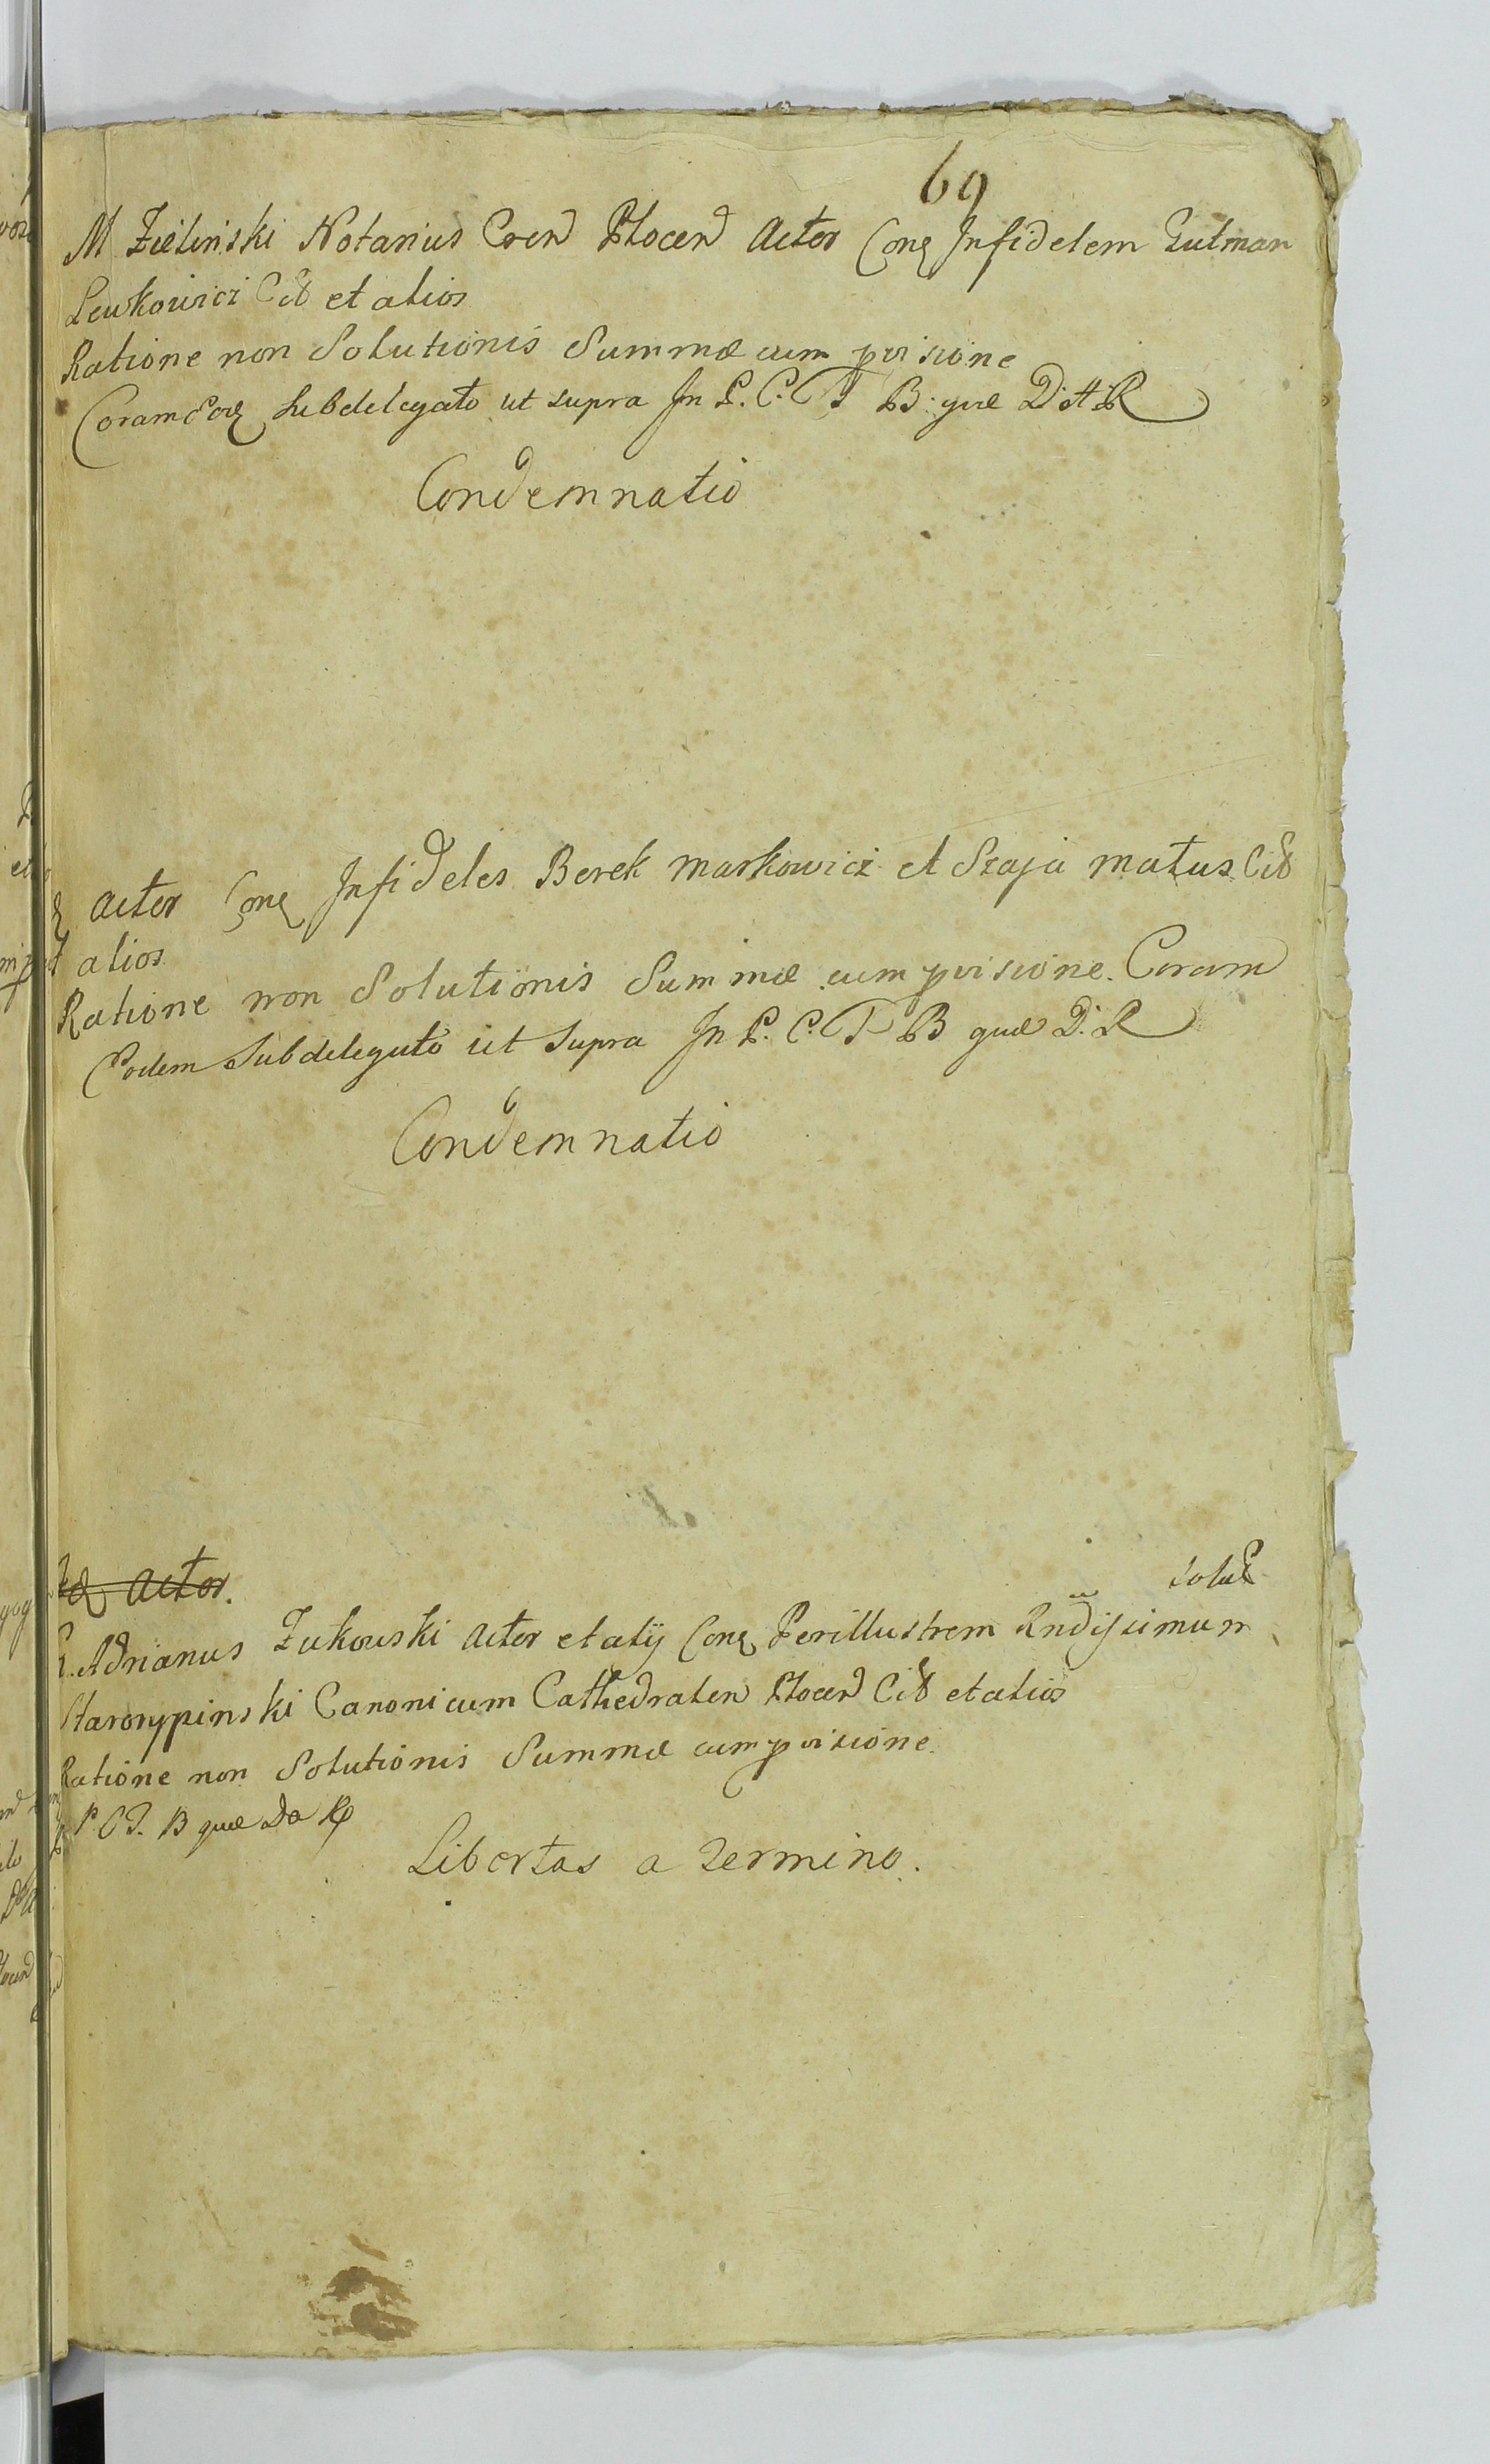 69
M Zielinski Notarius Cren Plocen Actor Conq Infidelem Gutman
Lewkowicz Cit et alios
Ratione non Solutionis Summæ cum pvisione
Coram Eodq Subdelegato ut supra In P. C. T B. quæ D A R
Condemnatio
Actor Conq Infideles Berek Markowicz et Szaja Matus Cit
et alios
Ratione non Solutionis Summæ cum pvisione. Coram
Eodem Subdelegato ut Supra In P. C. T B quæ D. R
Condemnatio
Actor.
Adrianus Zukowski Actor et alij Conq Perillustrem Rndissimum
Starorypinski Canonicum Cathedralen Plocen Cit et alios
Ratione non Solutionis Summæ cum pvisione.
P. C T. B quæ Da R
Libertas a Termino.